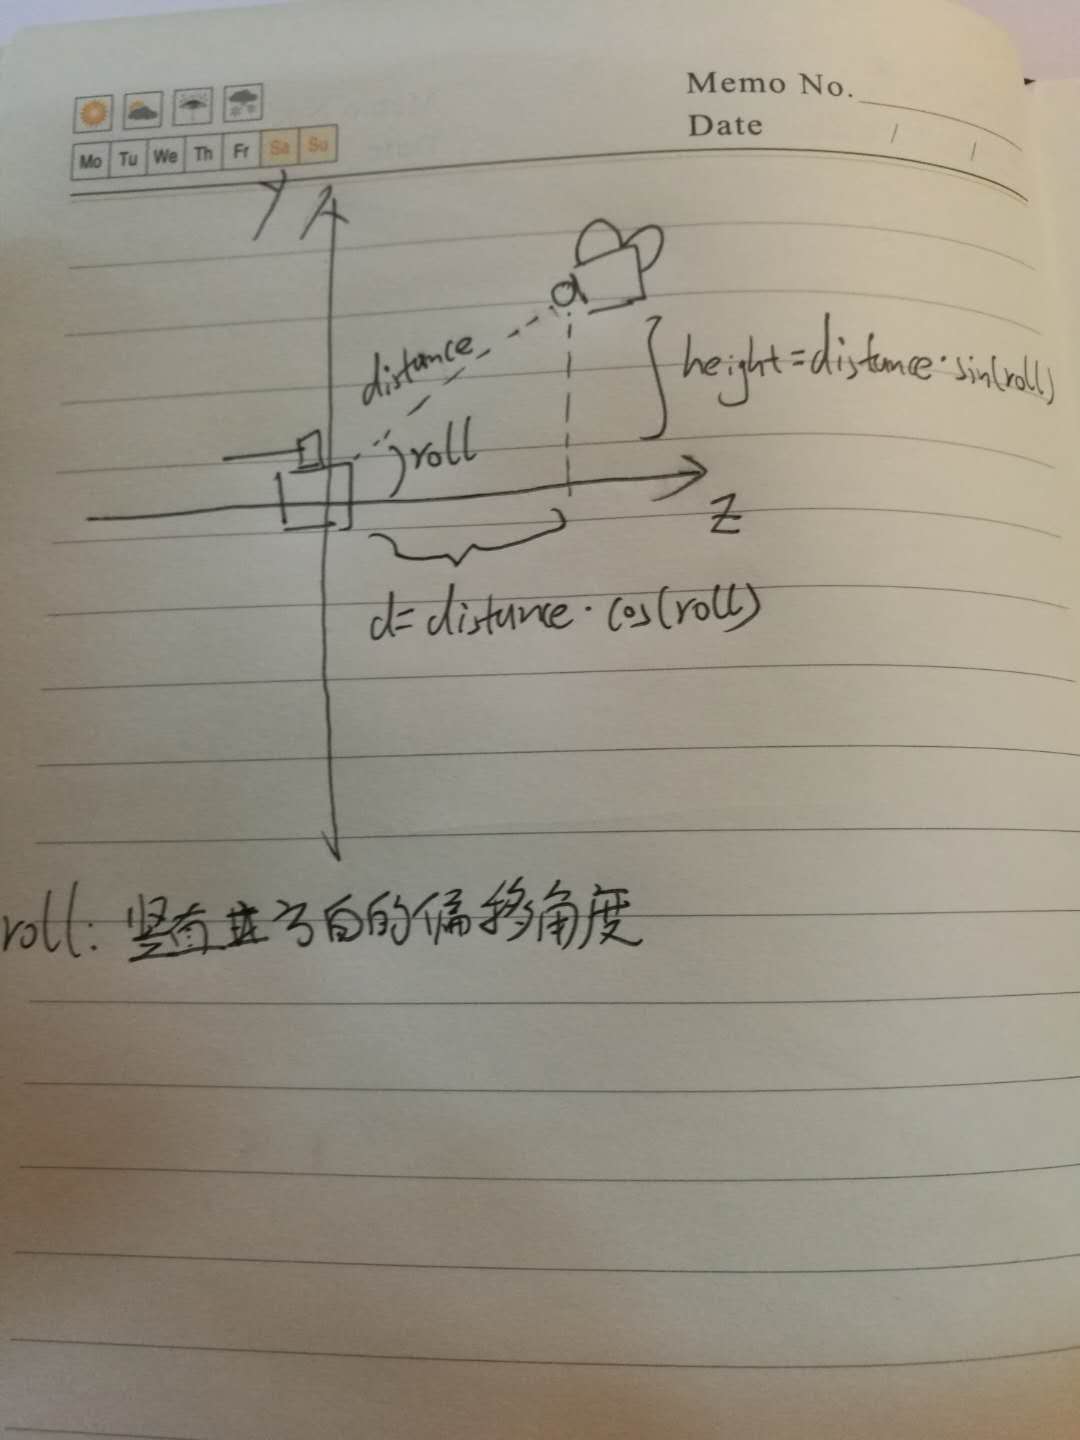 Memo No.
Date / /
Mo Tu We Th Fr Sa Su
Y
distance
height=distance·sin(roll)
roll
Z
d=distance·cos(roll)
roll: 竖直方向的偏移角度